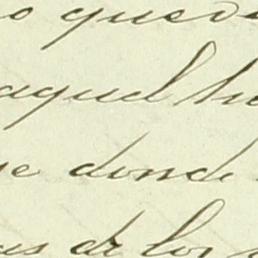 o queda
aquel ho
e donde
as de los